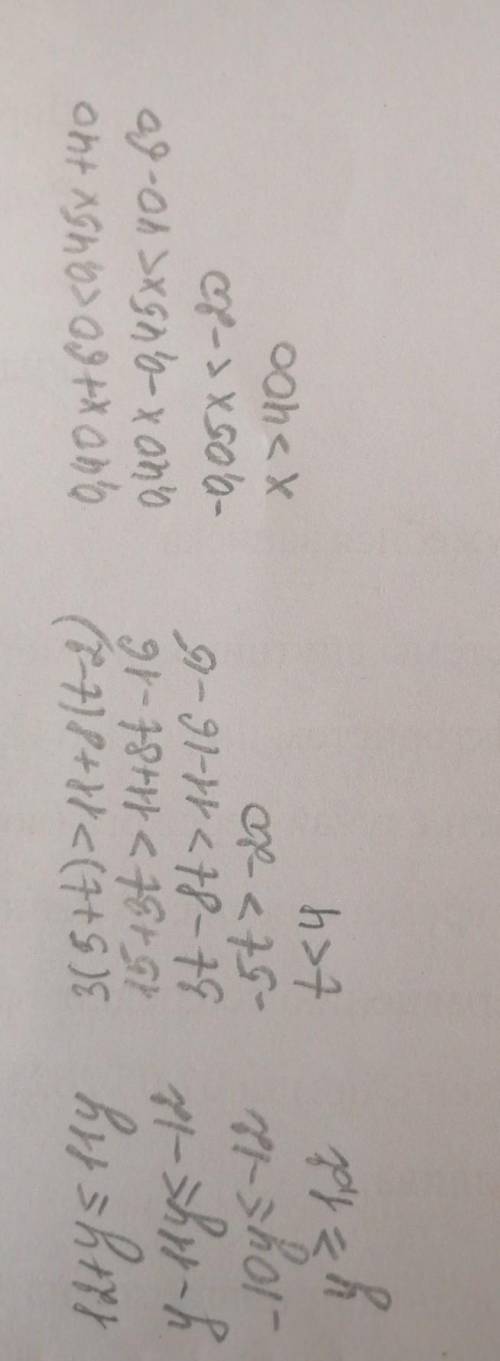 12+y ≤ 11y
y-11y ≤ -12
-10y ≤ -12
y ≥ 1,2
3(5+t) < 11+8(t-2)
15+3t < 11+8t-16
3t-8t < 11-16
-5t < -20
t > 4
0,40x+60 < 0,45x+40
0,40x-0,45x < 40-60
-0,05x < -20
x > 400